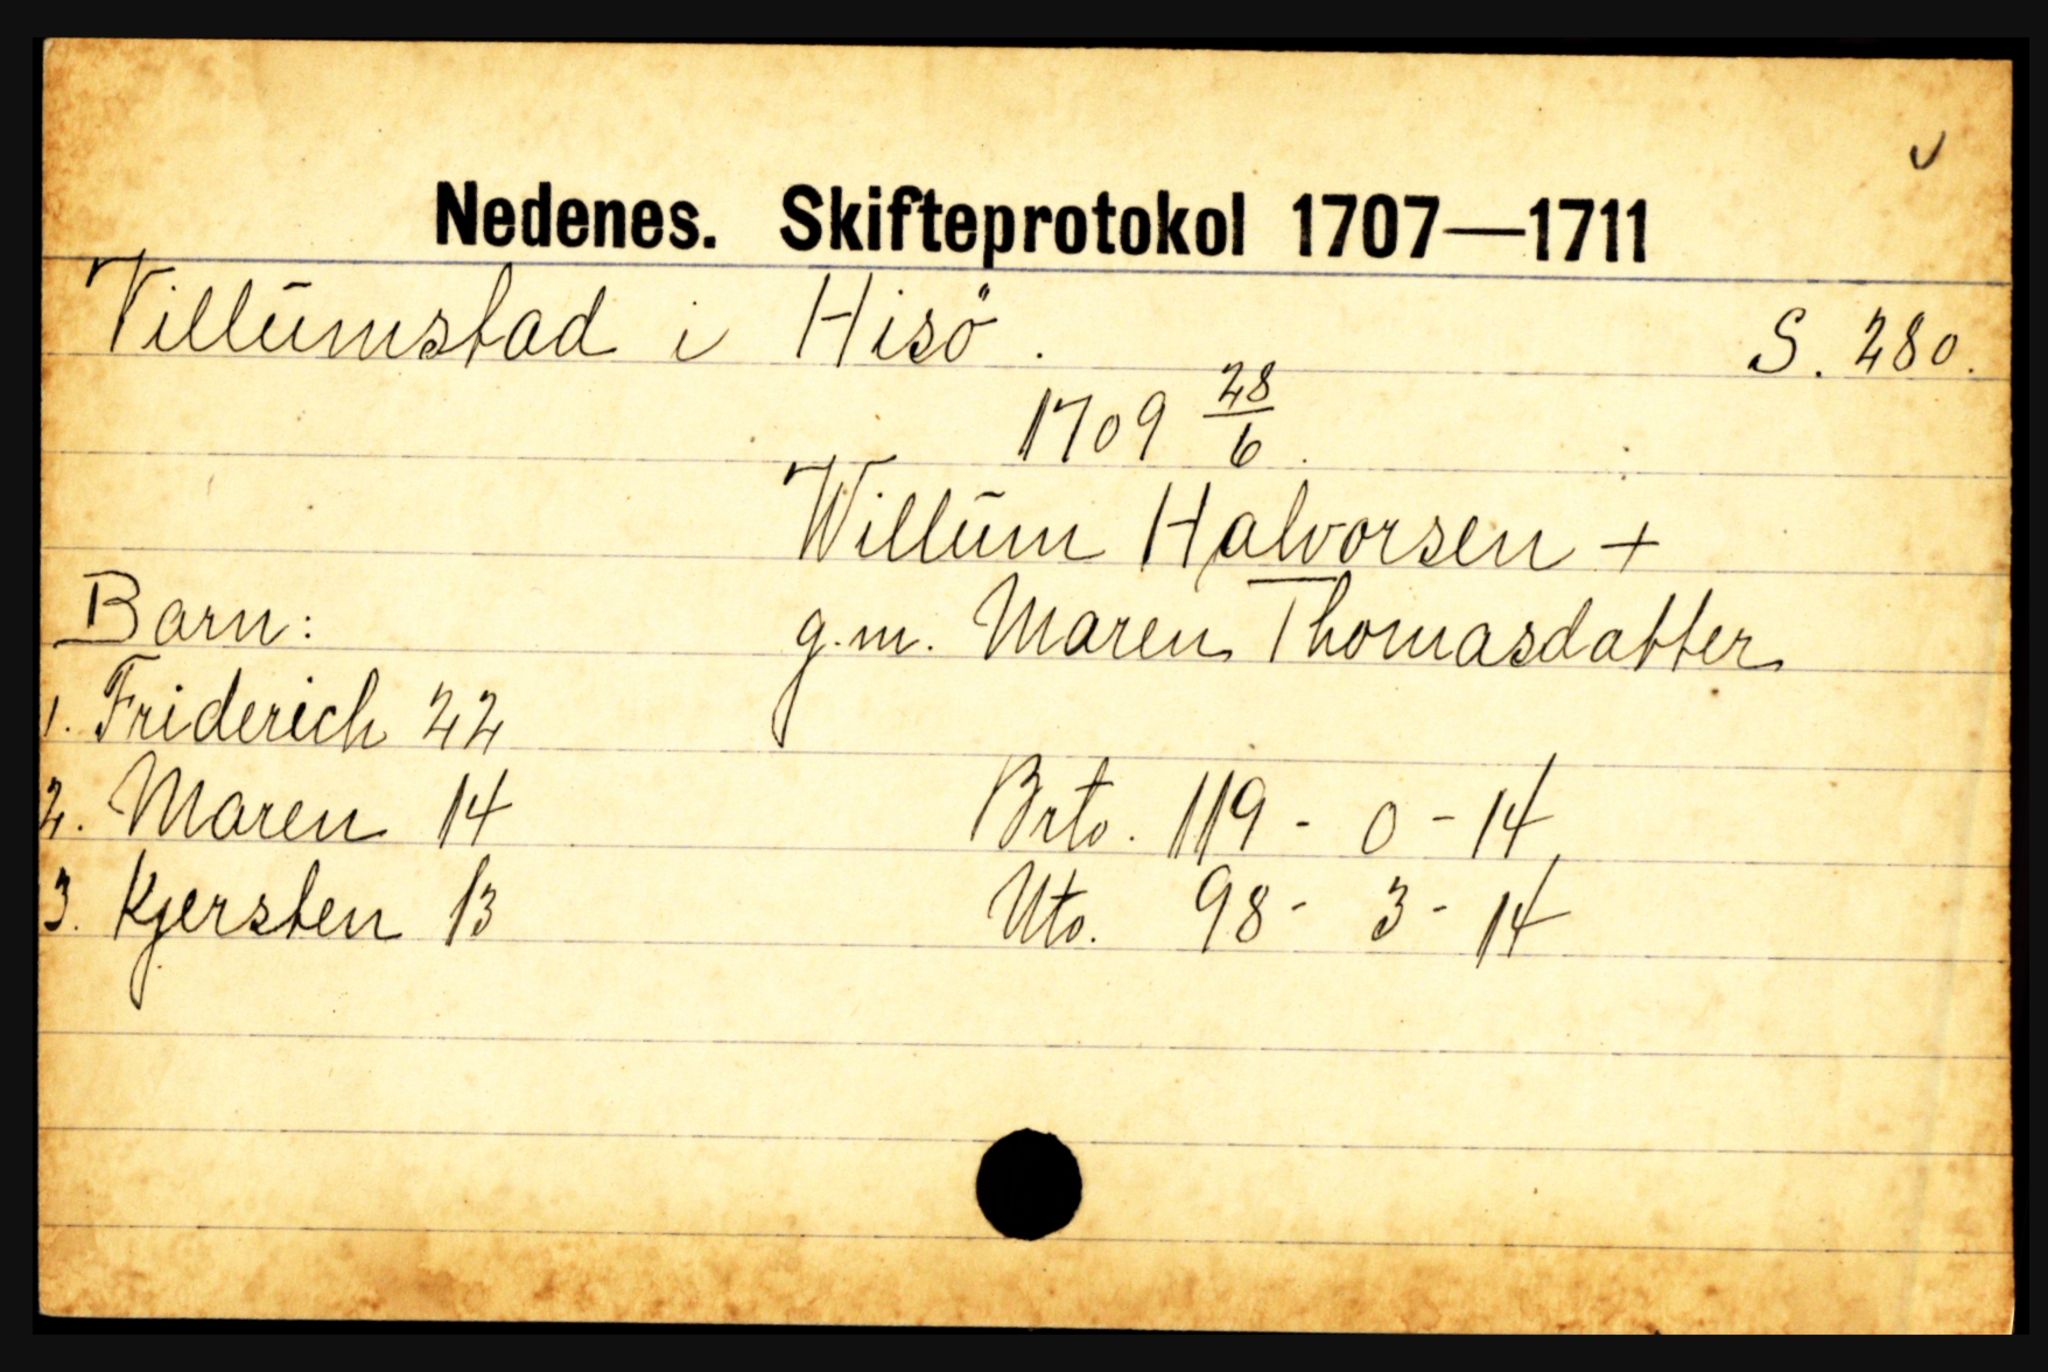 Nedenes. Skifteprotokol 1707—1711
Villumstad i Hisö. S. 280.
1709 28/6.
Willum Halvorsen +
Barn: g.m. Maren Thomasdatter
1. Friderich 22
2. Maren 14 Brto. 119 - 0 - 14
3. Kjersten 13 Nto. 98 - 3 - 14